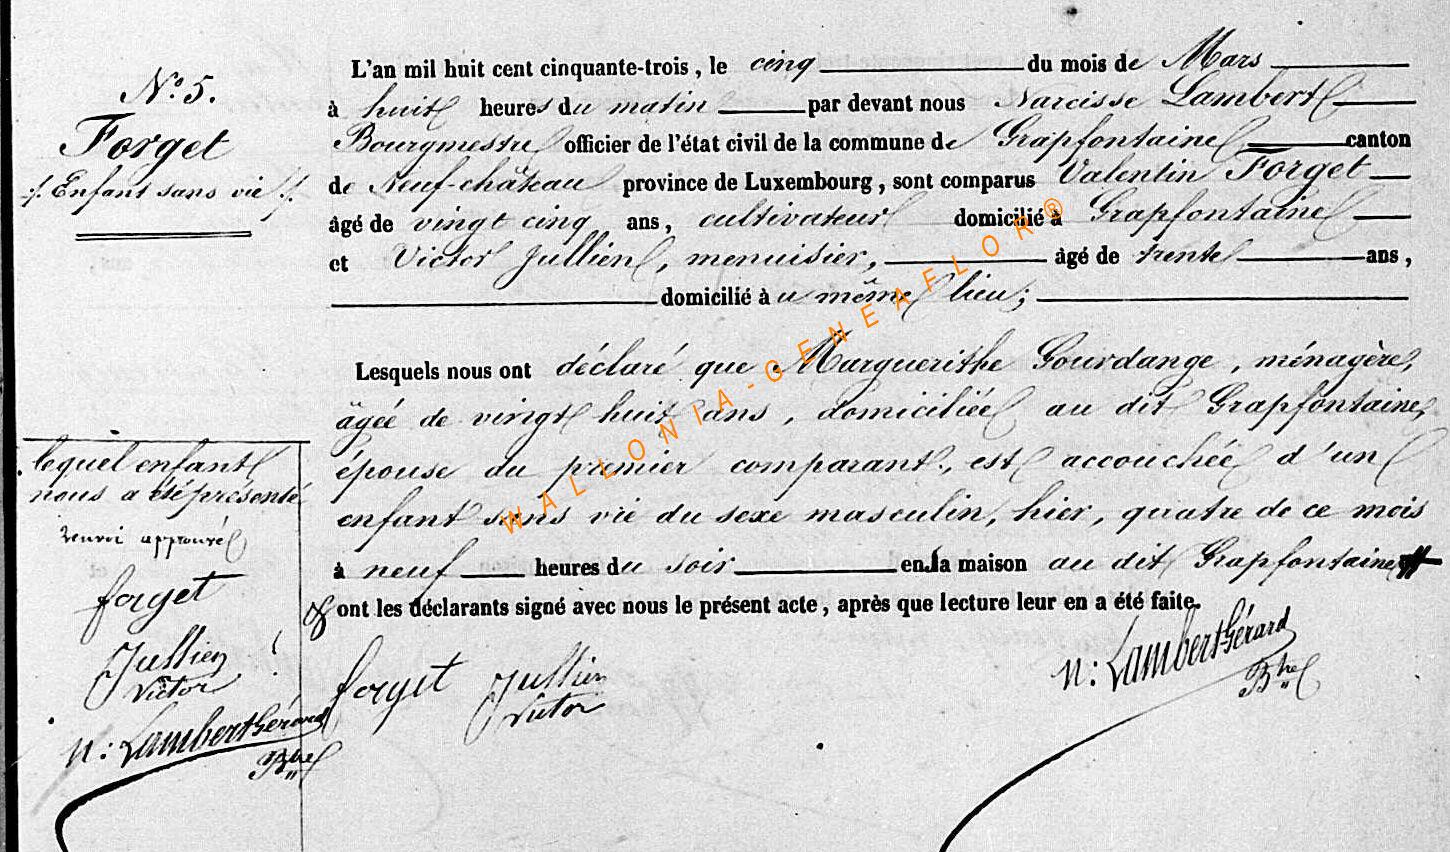 N.o 5.
Forget
./. Enfant sans vie ./.
L'an mil huit cent cinquante-trois, le cinq du mois de Mars
à huit heures du matin par devant nous Narcisse Lambert
Bourgmestre officier de l'état civil de la commune de Grapfontaine canton
de Neuf-château province de Luxembourg, sont comparus Valentin Forget
âgé de vingt cinq ans, cultivateur domicilié à Grapfontaine
et Victor Jullien, menuisier, âgé de trente ans,
domicilié à u même lieu;
Lesquels nous ont déclaré que Marguerithe Gourdange, ménagère,
âgée de vingt huit ans, domiciliée au dit Grapfontaine,
épouse du premier comparant, est accouchée d'un
enfant sans vie du sexe masculin, hier, quatre de ce mois
à neuf heures du soir en la maison au dit Grapfontaine
Et ont les déclarants signé avec nous le présent acte, après que lecture leur en a été faite.
forget Jullien Victor N: Lambert Gérard Btre
lequel enfant
nous a été présenté
renvoi approuvé
forget
Jullien
Victor
N: Lambert Gérard
Btre
WALLONIA-GENEAFLOR®